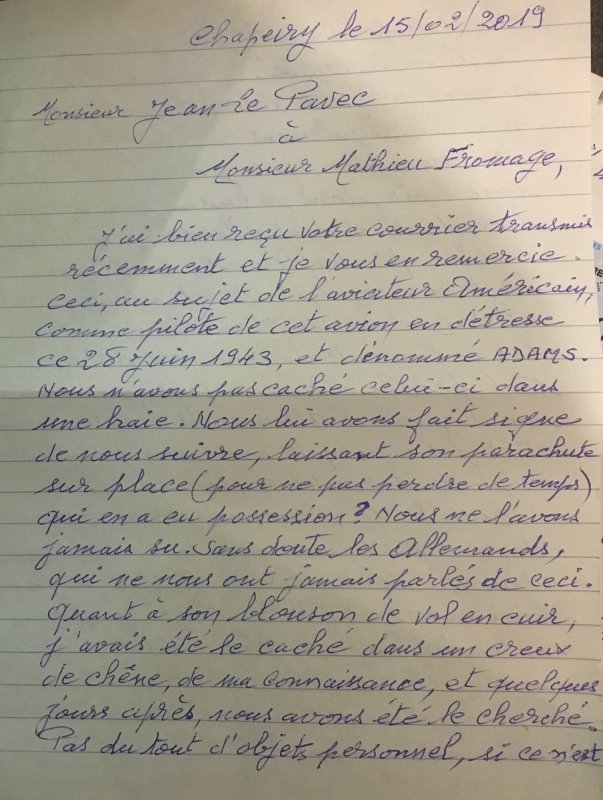 Chapeiry le 15/02/2019
Monsieur Jean Le Pavec
à
Monsieur Mathieu Fromage,
J'ai bien reçu votre courrier transmis
récemment et je vous en remercie.
Ceci, au sujet de l'aviateur Américain,
comme pilote de cet avion en détresse
ce 28 Juin 1943, et dénommé ADAMS.
Nous n'avons pas caché celui-ci dans
une haie. Nous lui avons fait signe
de nous suivre, laissant son parachute
sur place (pour ne pas perdre de temps)
qui en a eu possession? Nous ne l'avons
jamais su. Sans doute les Allemands,
qui ne nous ont jamais parlés de ceci.
Quant à son blouson de vol en cuir,
j'avais été le caché dans un creux
de chêne, de ma connaissance, et quelques
jours après, nous avons été le cherché.
Pas du tout d'objets personnel, si ce n'est